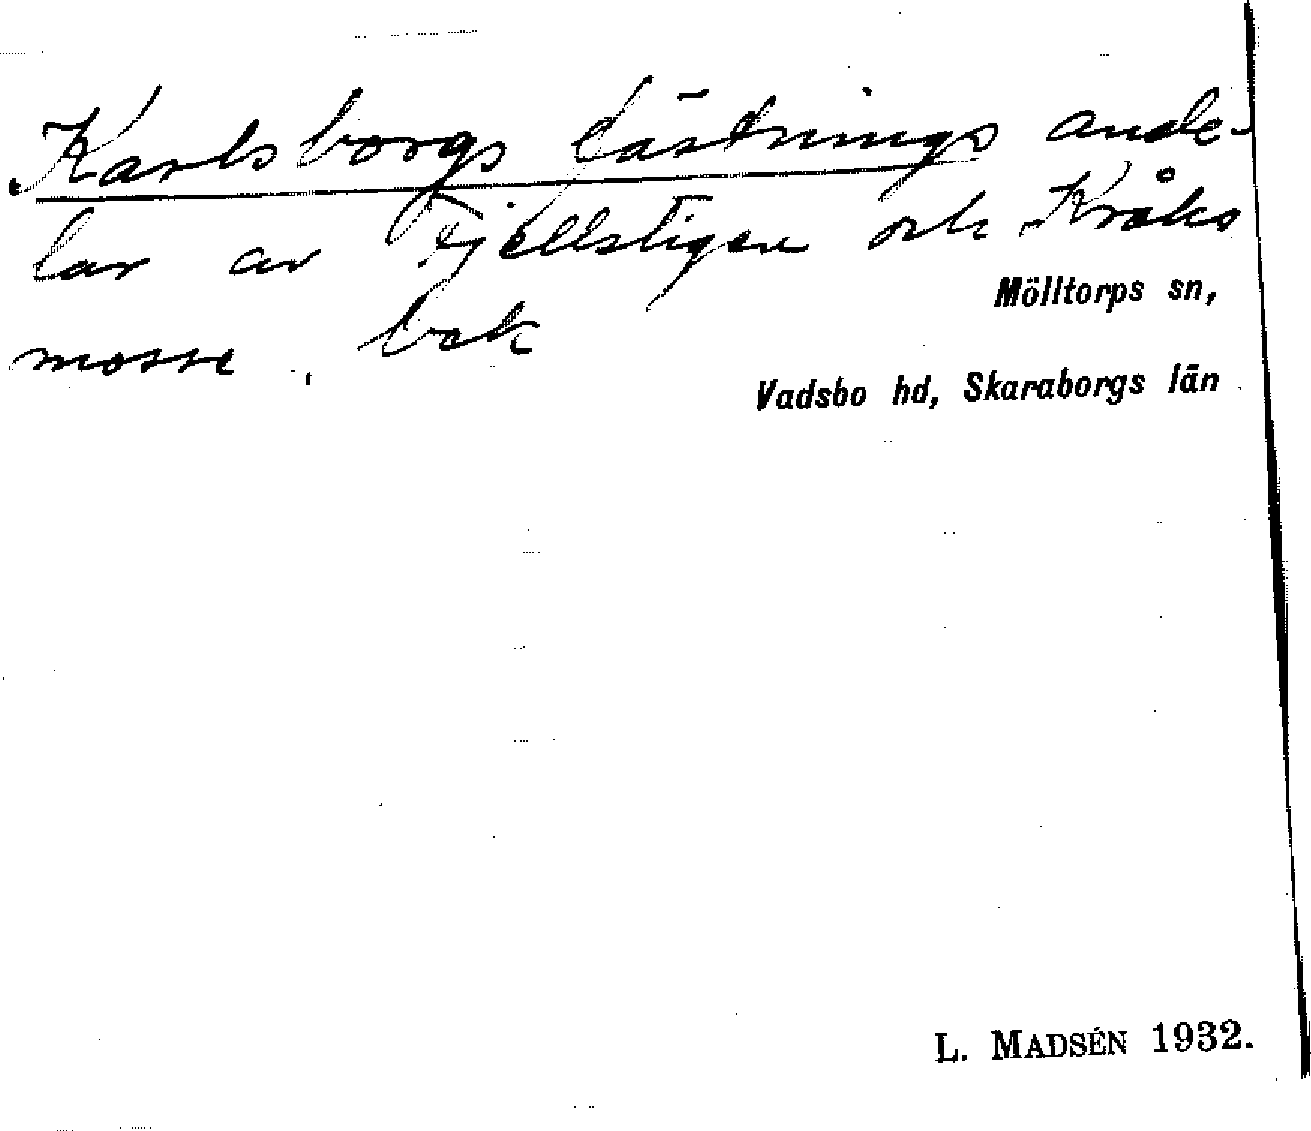 Karlsborgs fästnings ande-
lar av Fjellstigen och Kråks
mosse, bok
Mölltorps sn,
Vadsbo hd, Skaraborgs län
L. MADSÉN 1932.